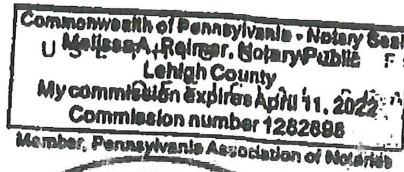 Commonwealth of Pennsylvania - Notary Seal
Melissa A. Reimer, Notary Public
Lehigh County
My commission expires April 11, 2022
Commission number 1282898
Member, Pennsylvania Association of Notaries